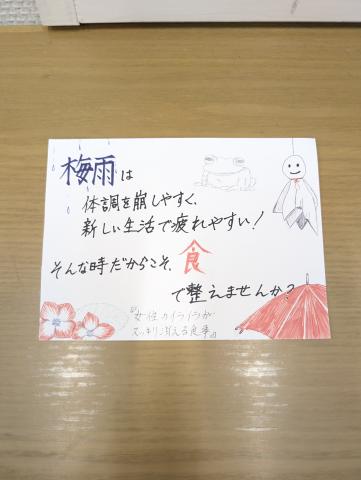 梅雨は
体調を崩しやすく、
新しい生活で疲れやすい!
そんな時だからこそ、食
で整えませんか?
『女性のイライラが
スッキリ消える食事』